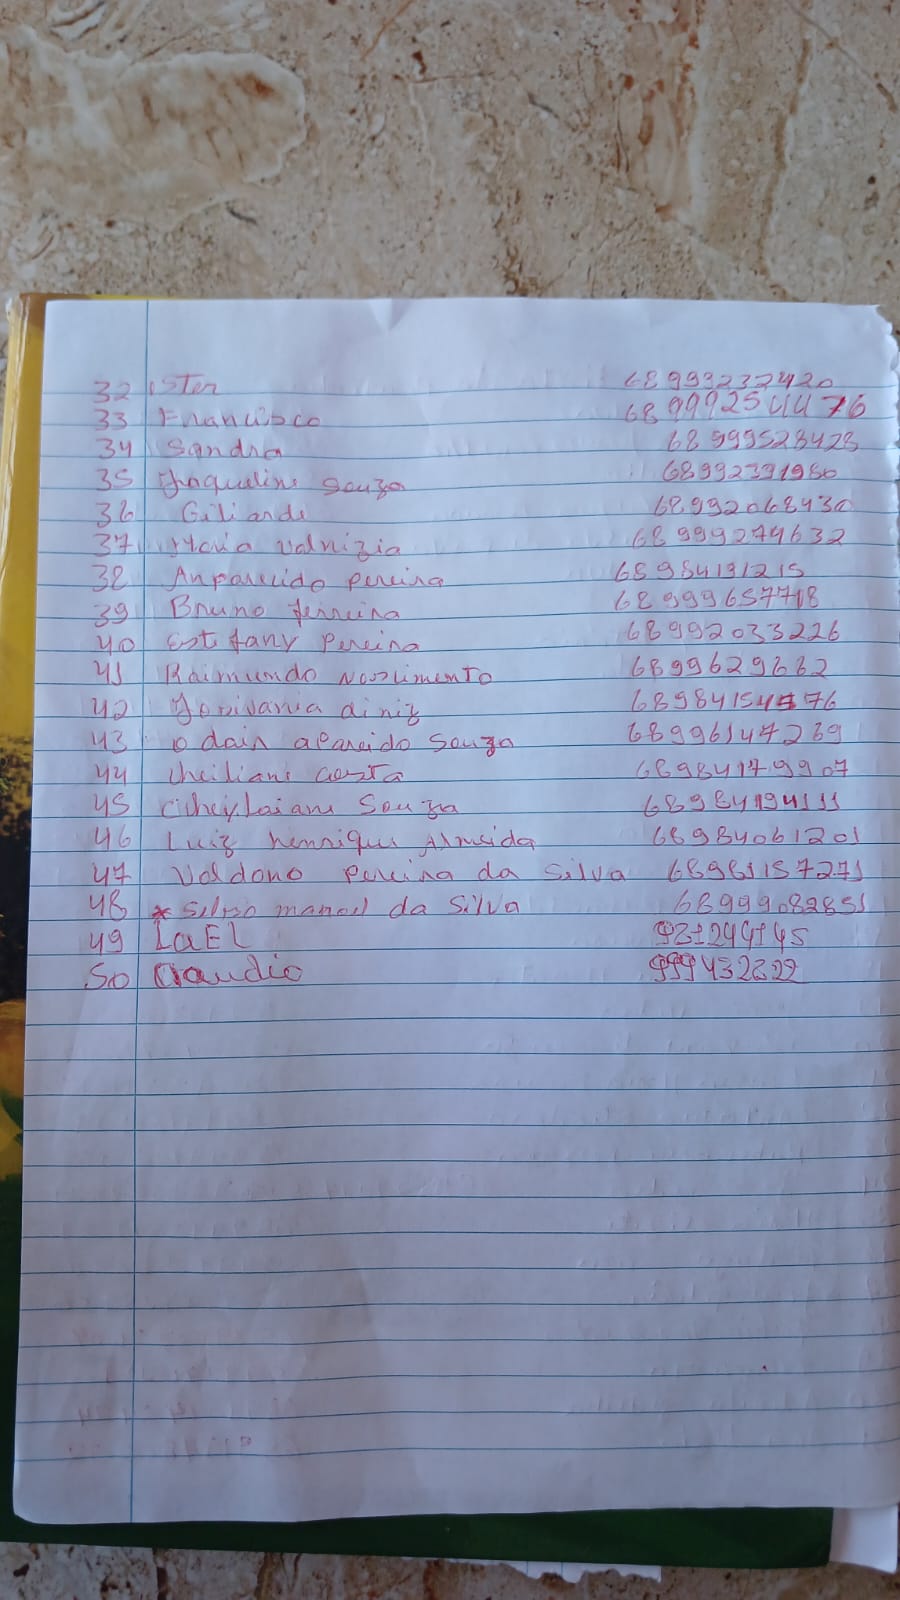 32 ister 68 999232420
33 Francisco 68 999254476
34 Sandra 68 999528428
35 Jnqueline Souza 68992391980
36 Giliande 68992068430
37 Maria Valnizia 68 999274632
38 Anparecido pereira 68984191215
39 Bruno ferreira 68999657718
40 Estefany Pereira 68992033226
41 Raimundo Nascimento 6899629662
42 Jorivania diniz 68984154776
43 o dair aparcido Souza 68996147269
44 cheiliane costa 68984179907
45 Ciheylaiane Souza 68984194111
46 Luiz henrique Almeida 68984061201
47 Valdono Pereira da Silva 68981157271
48 * silvio manoel da Silva 68999082851
49 LaEL
50 Claudio 999432322